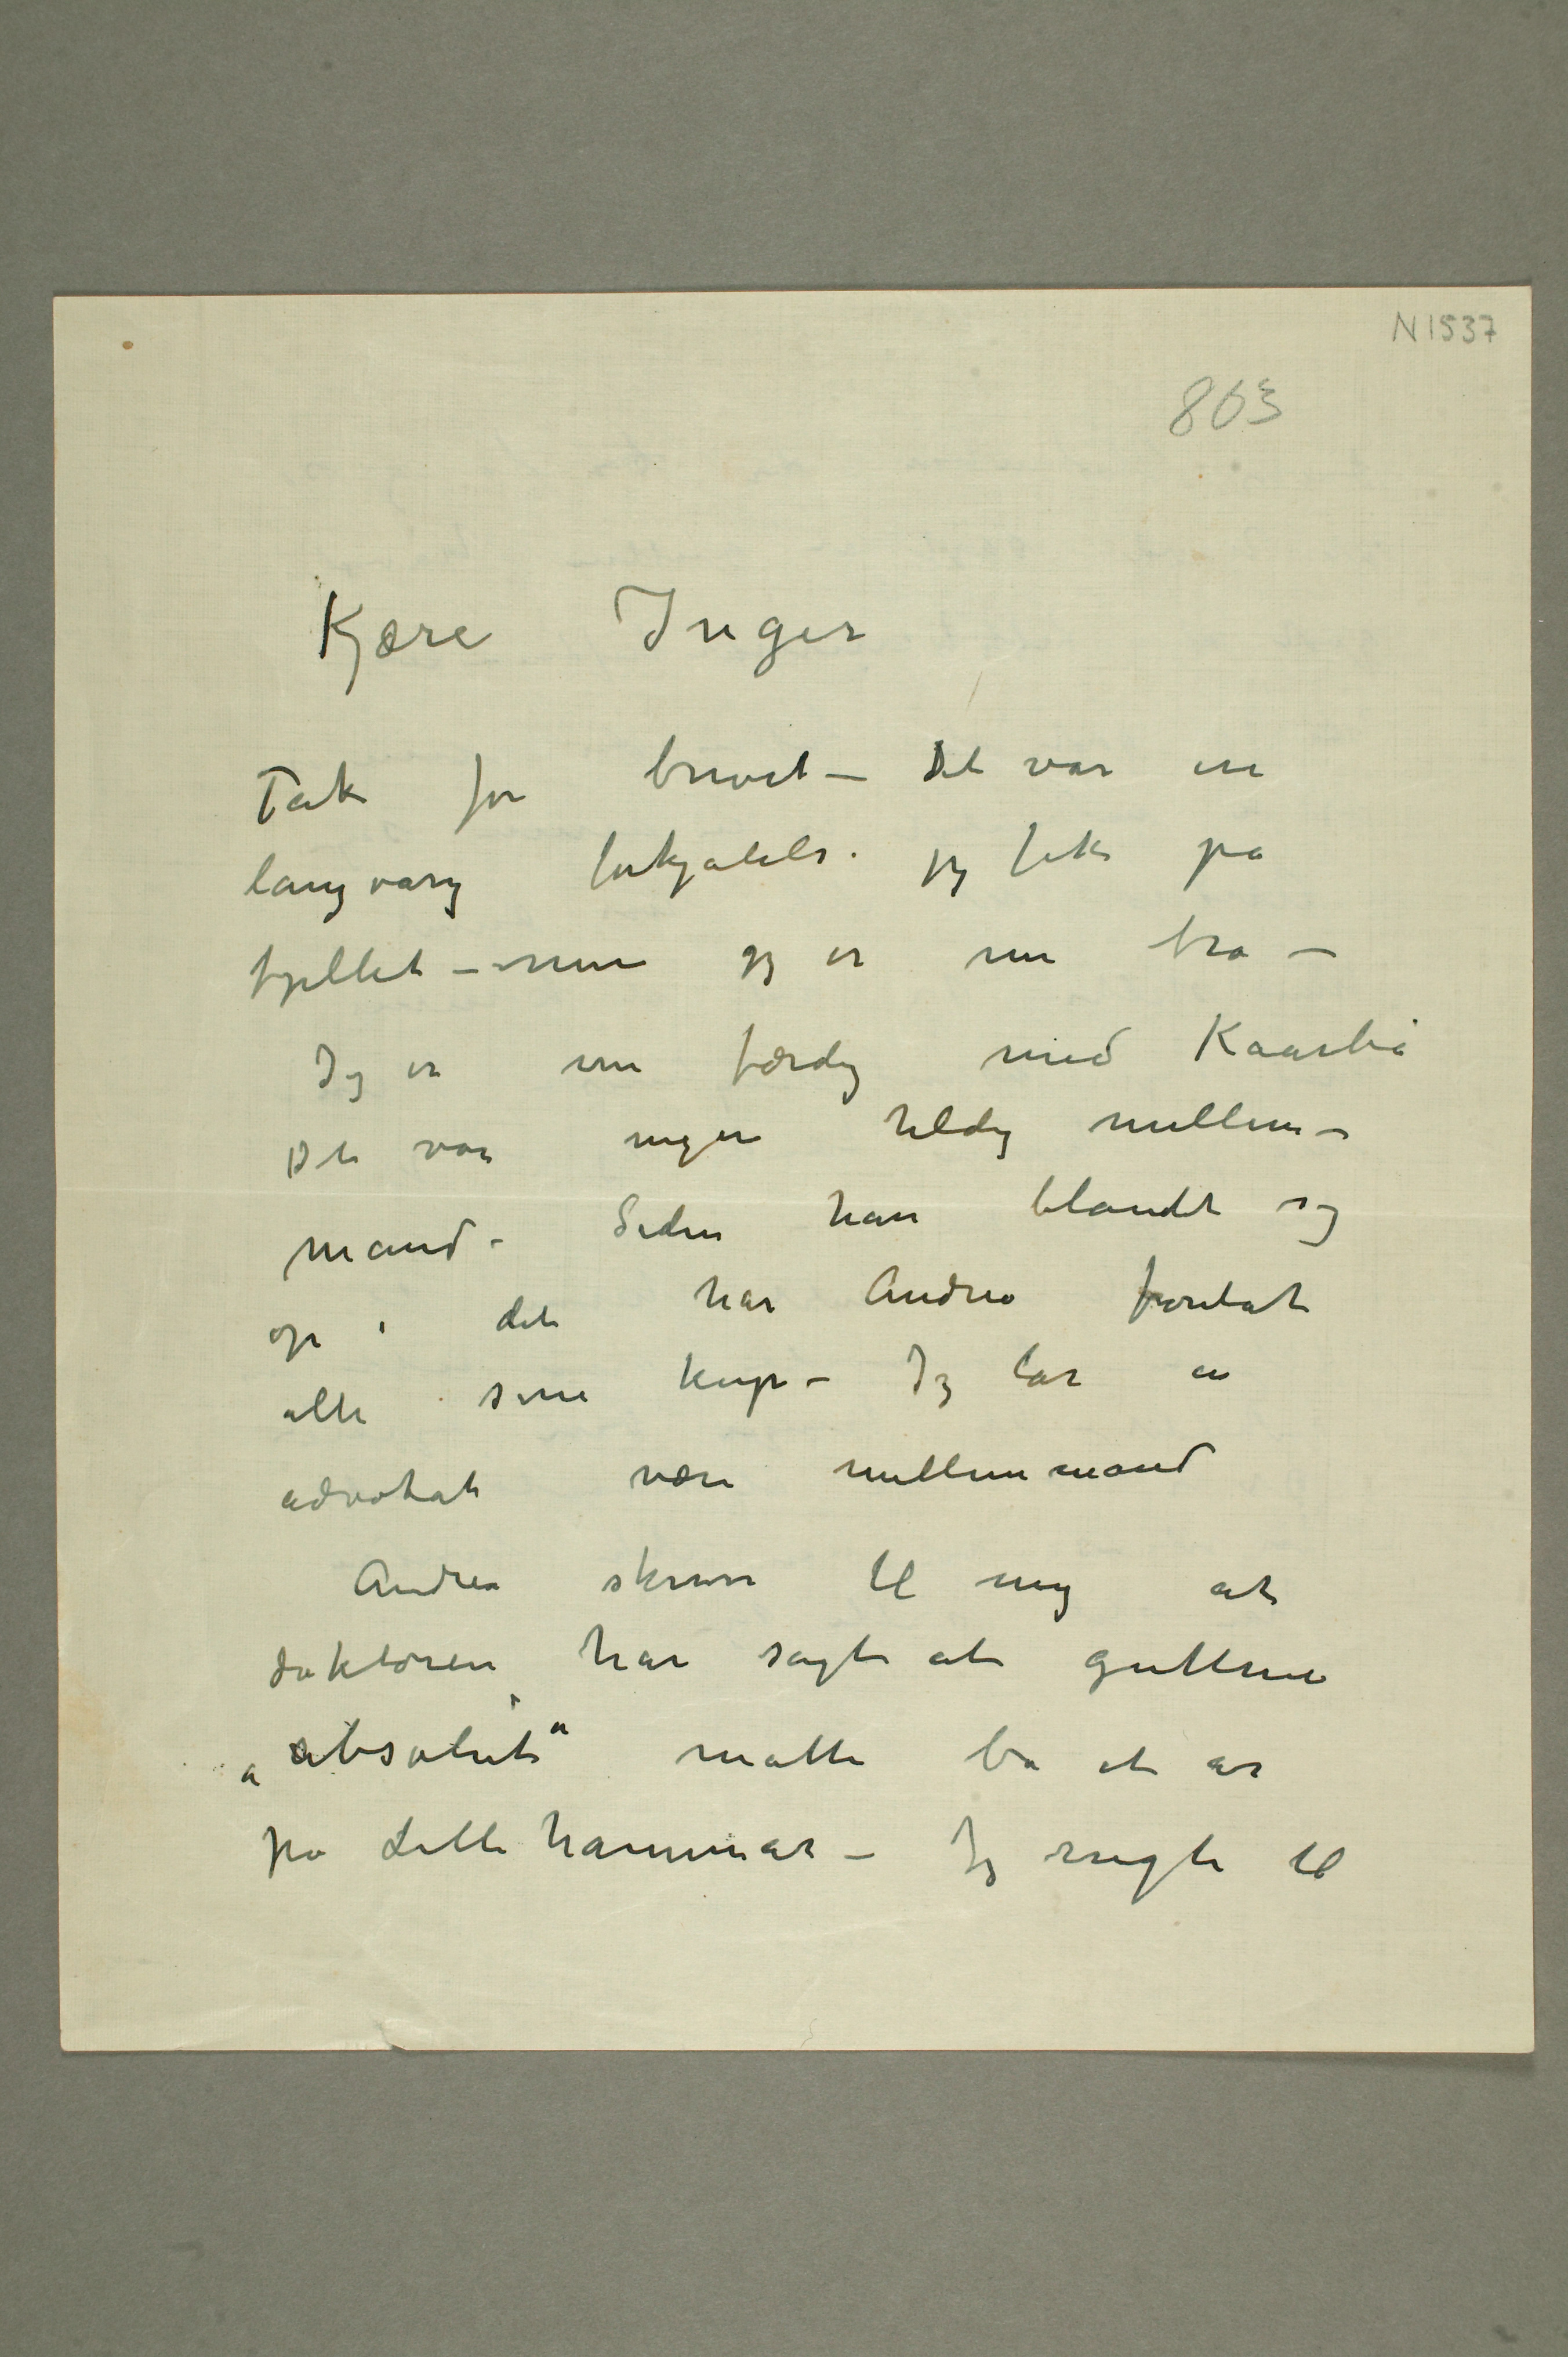 N 1537
863
Kjære Inger
Tak for brevet – Det var en
langvarig forkjølelse jeg fik på
fjellet – men jeg er nu bra –
Jeg er nu færdig med Kaarbø
Det var ingen heldig mellem-
mand – Siden han blandet sig
op i det har Andrea foretat
alle sine kup – Jeg lar en
advokat være mellemmand
Andrea skriver til mig at
doktoren har sagt at guttene
„absolut“ måtte bo et år
på Lillehammer – Jeg ringte til